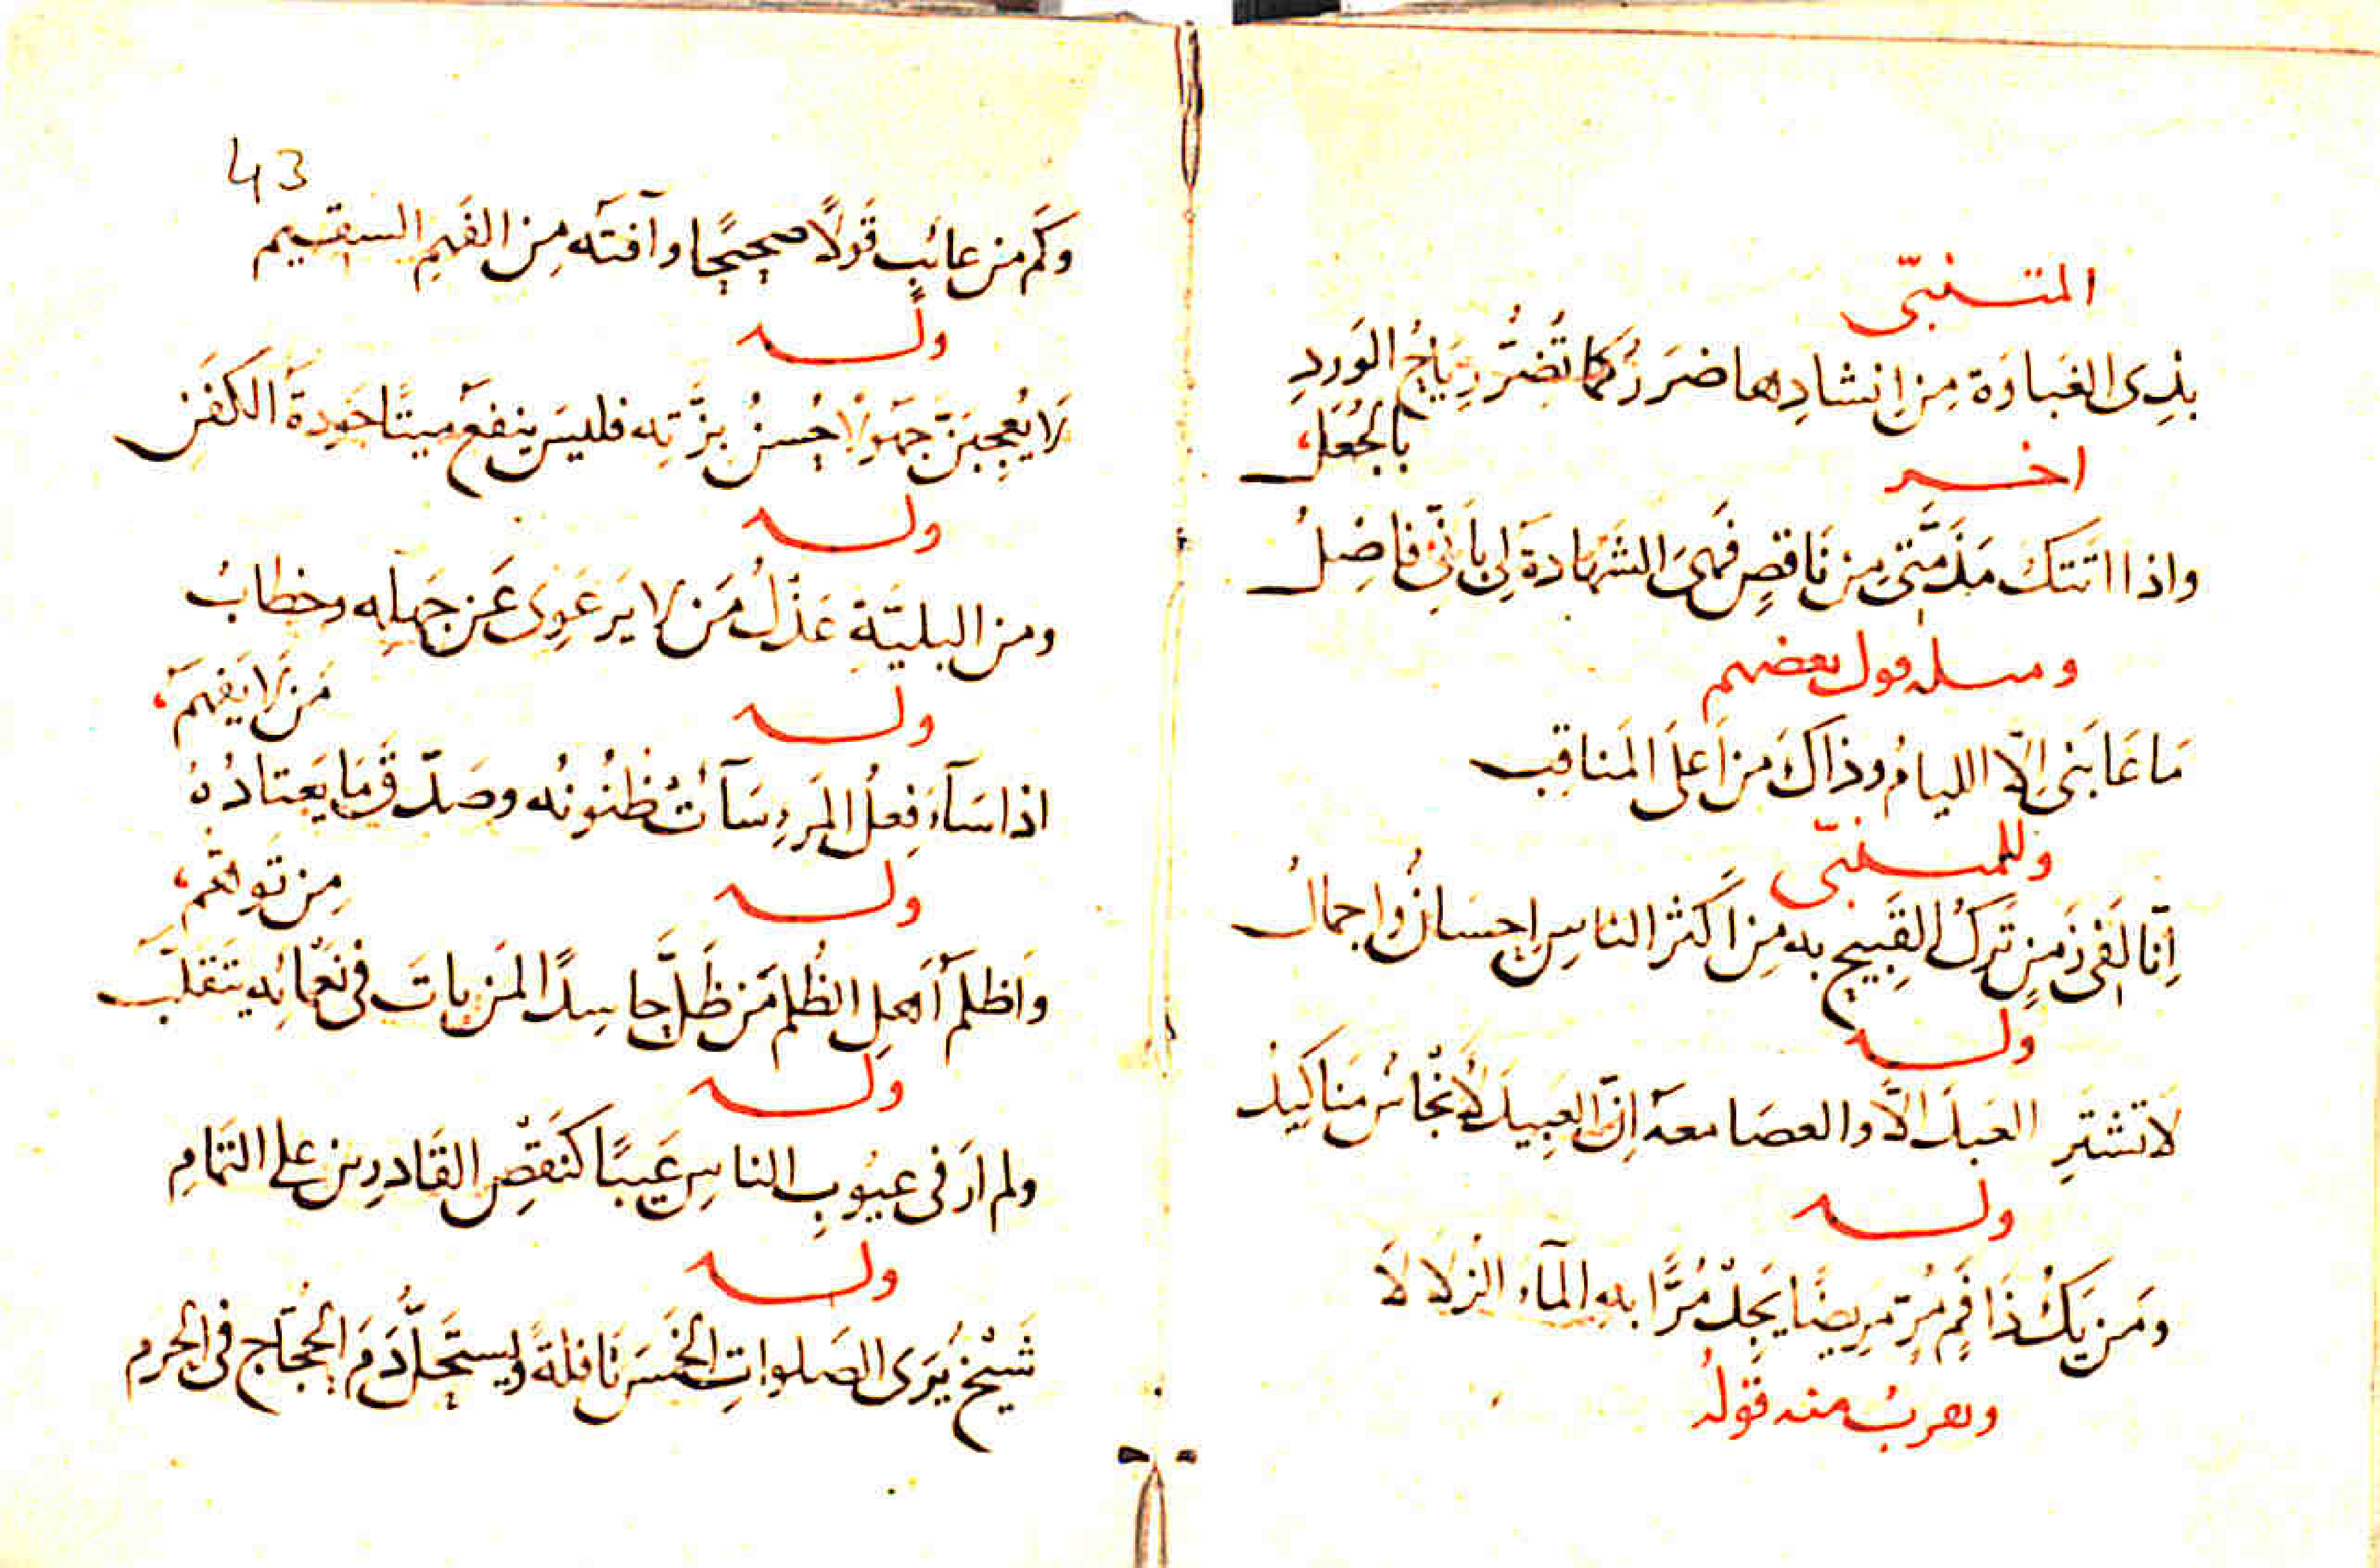 المتنبّى
بذِى الغَباوَة مِن اِنشادِها ضَررٌ كما تُضُرُّ رِيَاحُ الوَردِ
بالجُعَلِ
اخر
واذا اتَتكَ مَذَمَّتى مِن نَاقصٍ فَهىَ الشَهادَةَ لِى بِاَنّى فاضِلُ
ومثله قول بعضهم
مَا عَابَنى اِلّا الليامُ وذاكَ مِن اَعلَى المَناقِب
وللمتنبّى
اِنّا لَفى زَمنٍ تَركُ القَبِيحِ بهِ مِن اَكثَر الناسِ اِحسَانٌ واجمالُ
وله
لَا تَشتَرِ العَبدَ الّا والعصَا معهُ اِنّ العَبِيدَ لَاَنْجاسُ مَناكيدُ
وله
ومَن يَكُ ذَا فَمٍ مُرٍّ مَريضٍ يَجِد مُرًّا بهِ المَآءَ الزلَالَا
ويقربُ منه قَولهُ
43
وكَم مِن عائبٍ قَولًا صَحيحًا وآفتَه مِن الفَهمِ السقيم
وله
لَا يُعجِبَنَّ جَهَولًا حُسنُ بزَّتِه فليسَ ينفعُ ميتًا جَودةَ الكفَنِ
وله
ومن البليّةِ عَذلُ مَن لا يَرعَوِى عَن جَهلِه وخطابُ
مَن لَا يَفهَم
وله
اذا سَآءَ فِعلُ المَرءِ سَآئَتْ ظُنُونُه وصَدّقَ مَا يَعتادُهُ
مِن تَوهُّم
وله
وَاظلَمُ اَهلِ الظُلم مَن ظَلَّ حاسِدًا لمَن بَاتَ فى نَعْمائِه يتَقلّب
وله
ولم ارَ فى عيُوبِ الناسِ عَيبًا كنَقصِ القَادرِين على التَمامِ
وله
شَيْخٌ يَرَى الصَلواتِ الخَمسَ نَافلةً ويستَحِلُّ دَمَ الحُجّاجِ فى الحرم